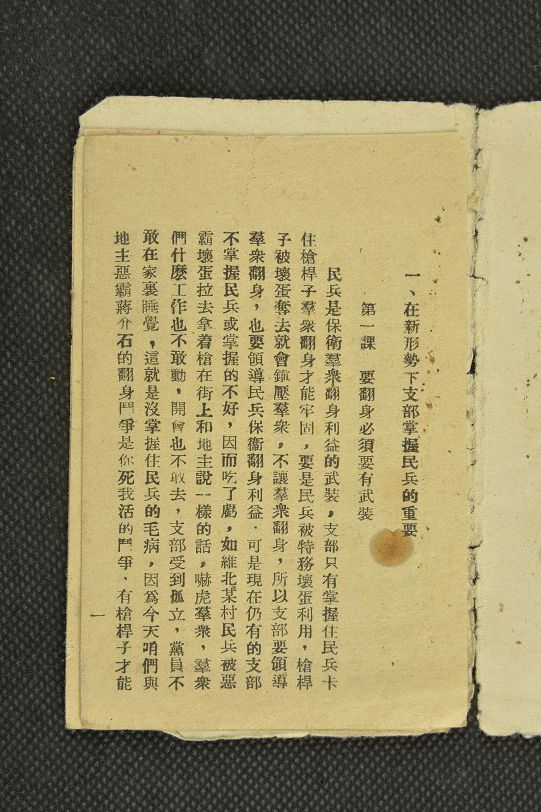 一、在新形勢下支部掌握民兵的重要
第一課　要翻身必須要有武裝
民兵是保衛羣衆翻身利益的武裝，支部只有掌握住民兵卡
住槍桿子羣衆翻身才能牢固，要是民兵被特務壞蛋利用，槍桿
子被壞蛋奪去就會鎮壓羣衆，不讓羣衆翻身，所以支部要領導
羣衆翻身，也要領導民兵保衞翻身利益．可是現在仍有的支部
不掌握民兵或掌握的不好，因而吃了虧，如維北某村民兵被惡
霸壞蛋拉去拿着槍在街上和地主說一樣的話，嚇虎羣衆，羣衆
們什麽工作也不敢動，開會也不敢去，支部受到孤立，黨員不
敢在家裏睡覺，這就是沒掌握住民兵的毛病，因爲今天咱們與
地主惡霸蔣介石的翻身鬥爭是你死我活的鬥爭、有槍桿子才能
一